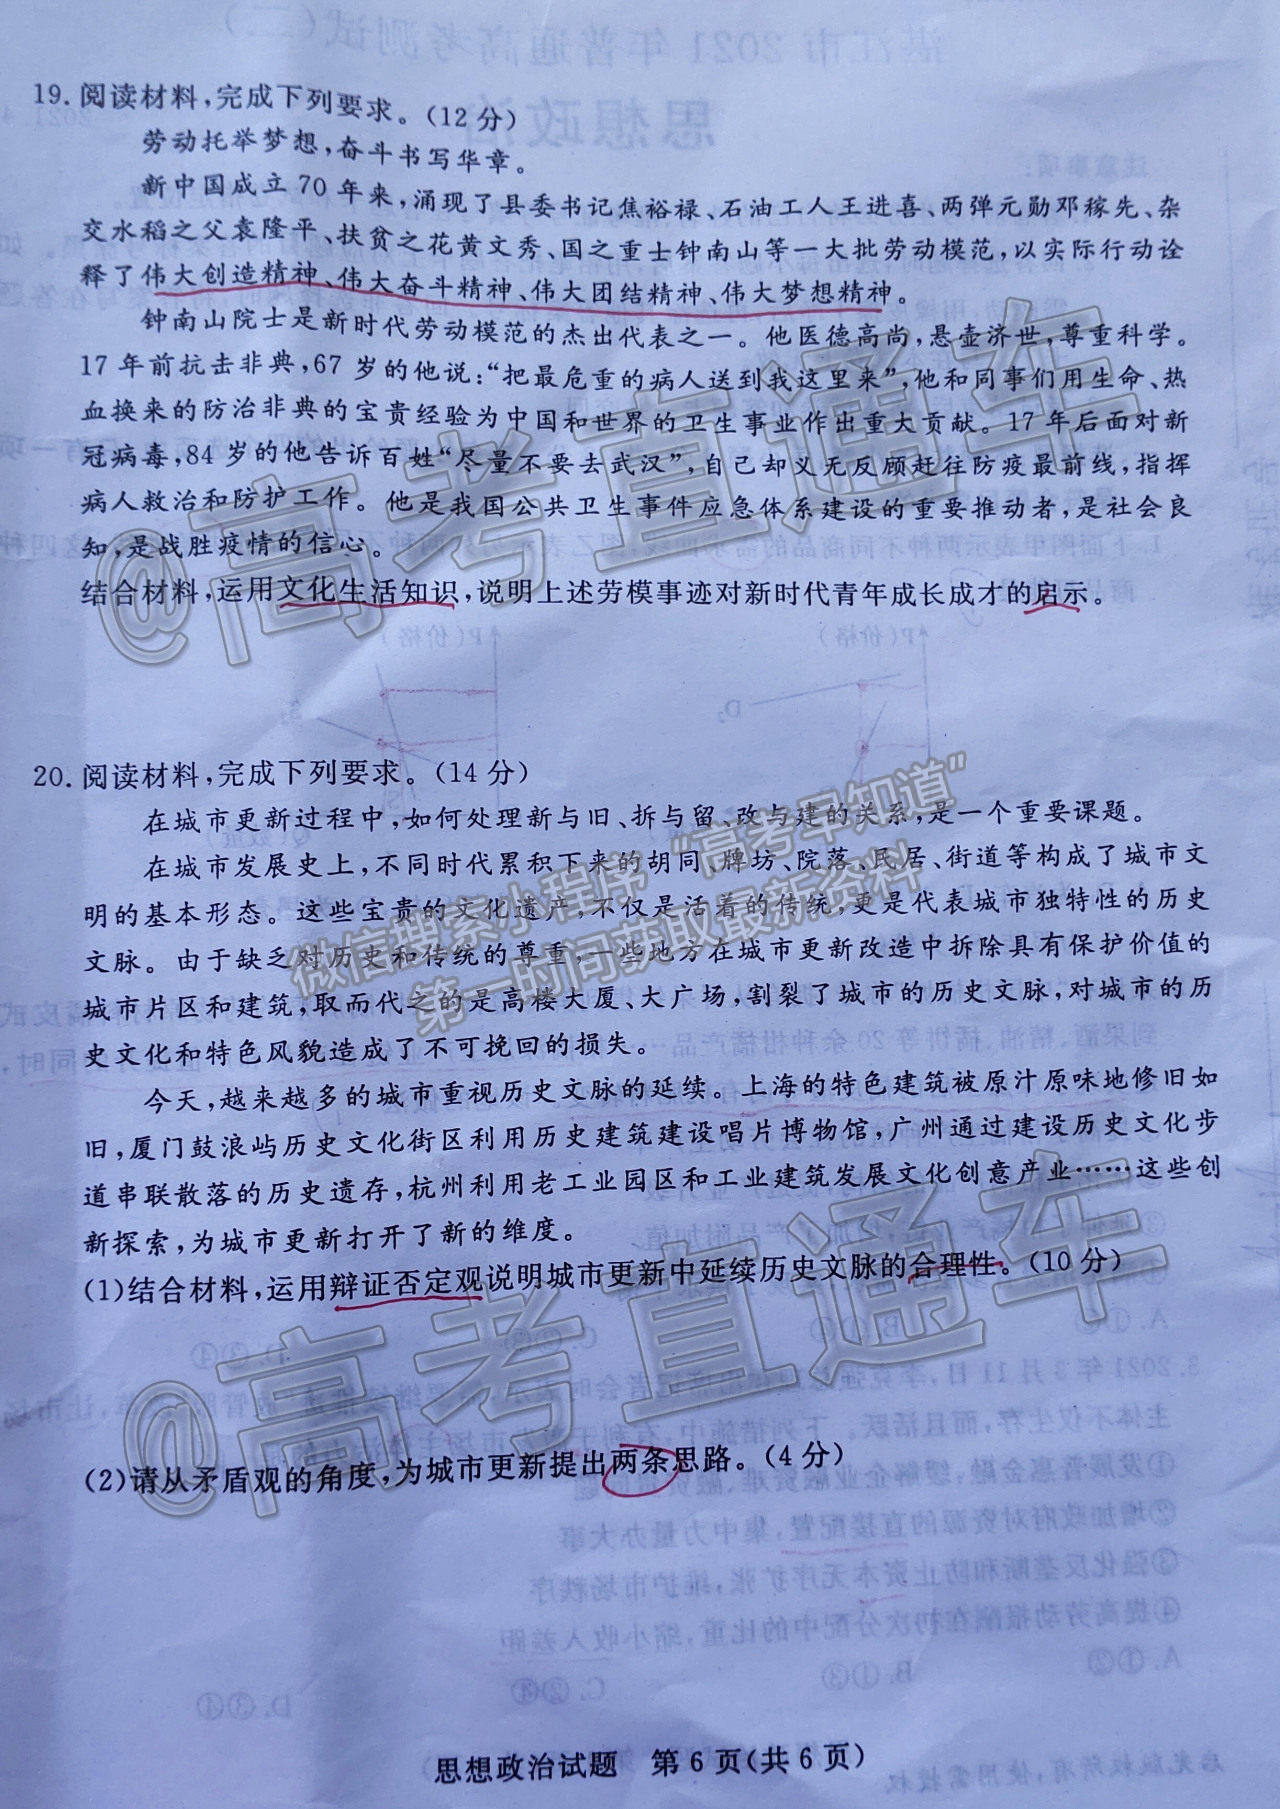 19. 阅读材料,完成下列要求。(12分)
劳动托举梦想,奋斗书写华章。
新中国成立70年来,涌现了县委书记焦裕禄、石油工人王进喜、两弹元勋邓稼先、杂
交水稻之父袁隆平、扶贫之花黄文秀、国之重士钟南山等一大批劳动模范,以实际行动诠
释了伟大创造精神、伟大奋斗精神、伟大团结精神、伟大梦想精神。
钟南山院士是新时代劳动模范的杰出代表之一。他医德高尚,悬壶济世,尊重科学。
17年前抗击非典,67岁的他说:“把最危重的病人送到我这里来”,他和同事们用生命、热
血换来的防治非典的宝贵经验为中国和世界的卫生事业作出重大贡献。17年后面对新
冠病毒,84岁的他告诉百姓“尽量不要去武汉”,自己却义无反顾赶往防疫最前线,指挥
病人救治和防护工作。他是我国公共卫生事件应急体系建设的重要推动者,是社会良
知,是战胜疫情的信心。
结合材料,运用文化生活知识,说明上述劳模事迹对新时代青年成长成才的启示。
20. 阅读材料,完成下列要求。(14分)
在城市更新过程中,如何处理新与旧、拆与留、改与建的关系,是一个重要课题。
在城市发展史上,不同时代累积下来的胡同、牌坊、院落、民居、街道等构成了城市文
明的基本形态。这些宝贵的文化遗产,不仅是活着的传统,更是代表城市独特性的历史
文脉。由于缺乏对历史和传统的尊重,一些地方在城市更新改造中拆除具有保护价值的
城市片区和建筑,取而代之的是高楼大厦、大广场,割裂了城市的历史文脉,对城市的历
史文化和特色风貌造成了不可挽回的损失。
今天,越来越多的城市重视历史文脉的延续。上海的特色建筑被原汁原味地修旧如
旧,厦门鼓浪屿历史文化街区利用历史建筑建设唱片博物馆,广州通过建设历史文化步
道串联散落的历史遗存,杭州利用老工业园区和工业建筑发展文化创意产业……这些创
新探索,为城市更新打开了新的维度。
(1)结合材料,运用辩证否定观说明城市更新中延续历史文脉的合理性。(10分)
(2)请从矛盾观的角度,为城市更新提出两条思路。(4分)
思想政治试题 第6页(共6页)
@高考直通车
微信搜索小程序“高考早知道”
第一时间获取最新资料
@高考直通车